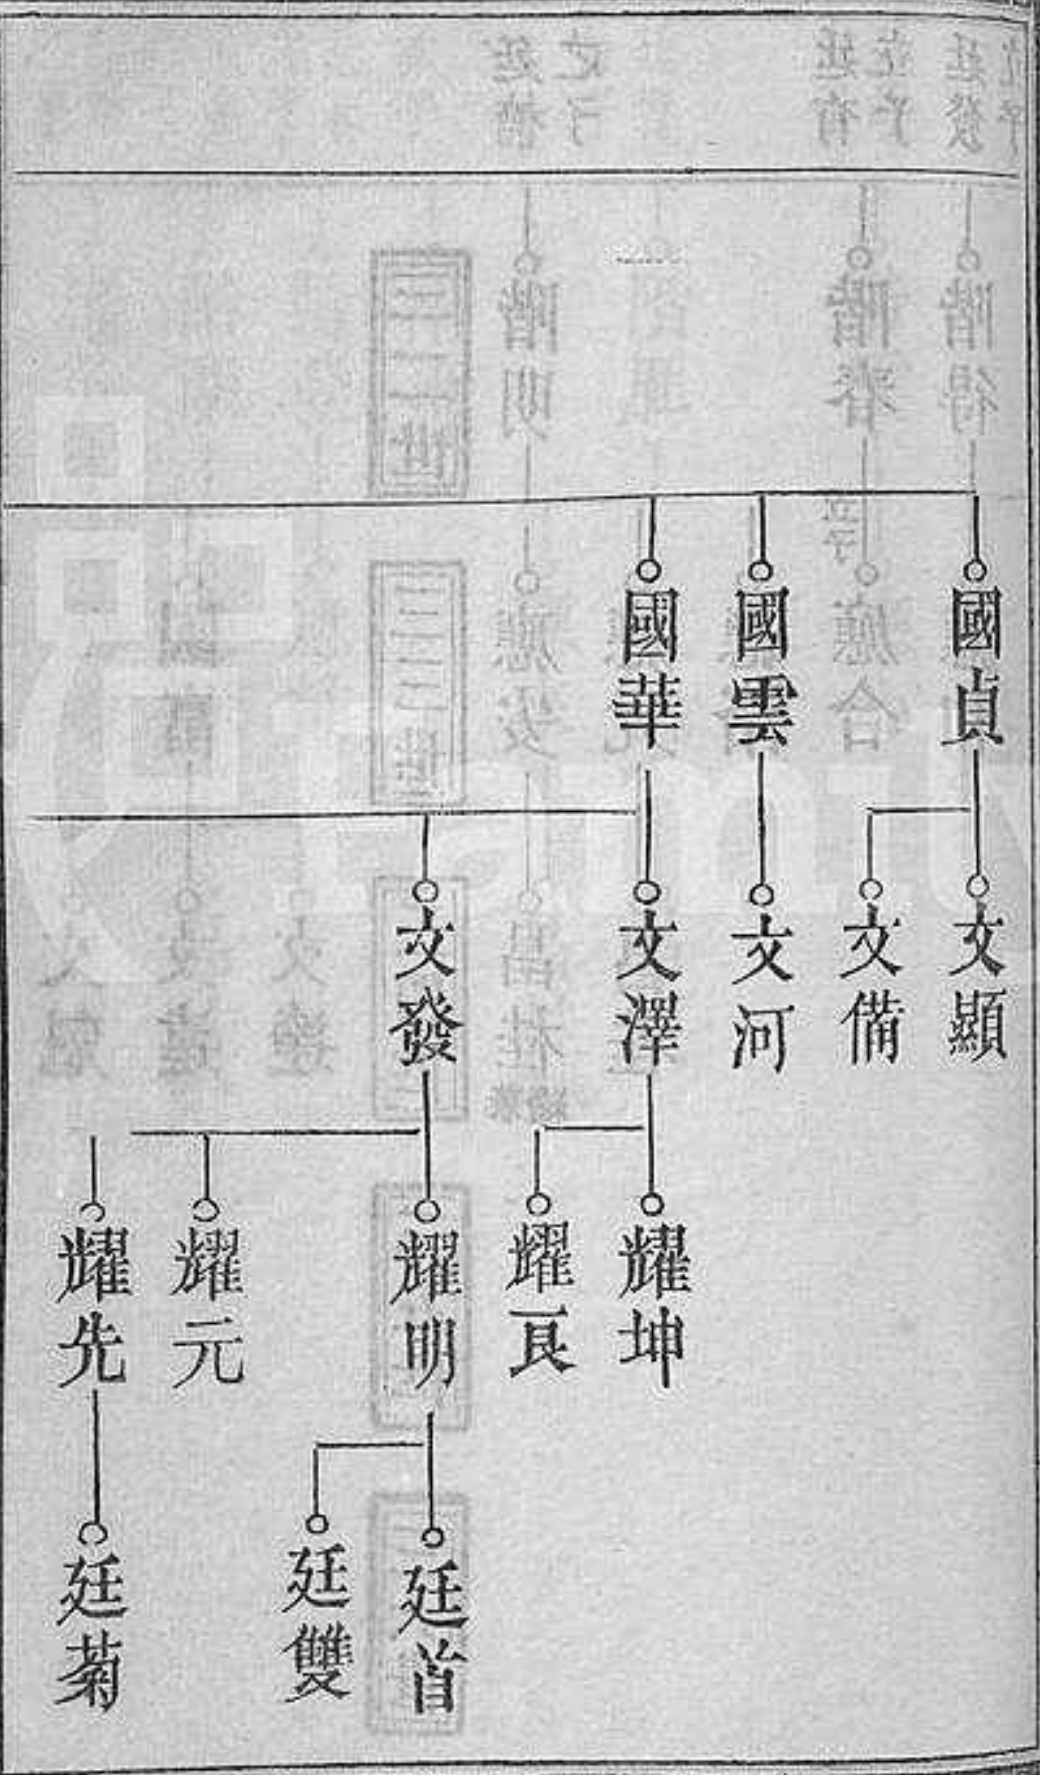 國貞
國雲
國華
文顯
文備
文河
文澤
文發
耀坤
耀良
耀明
耀元
耀先
廷首
廷雙
廷菊